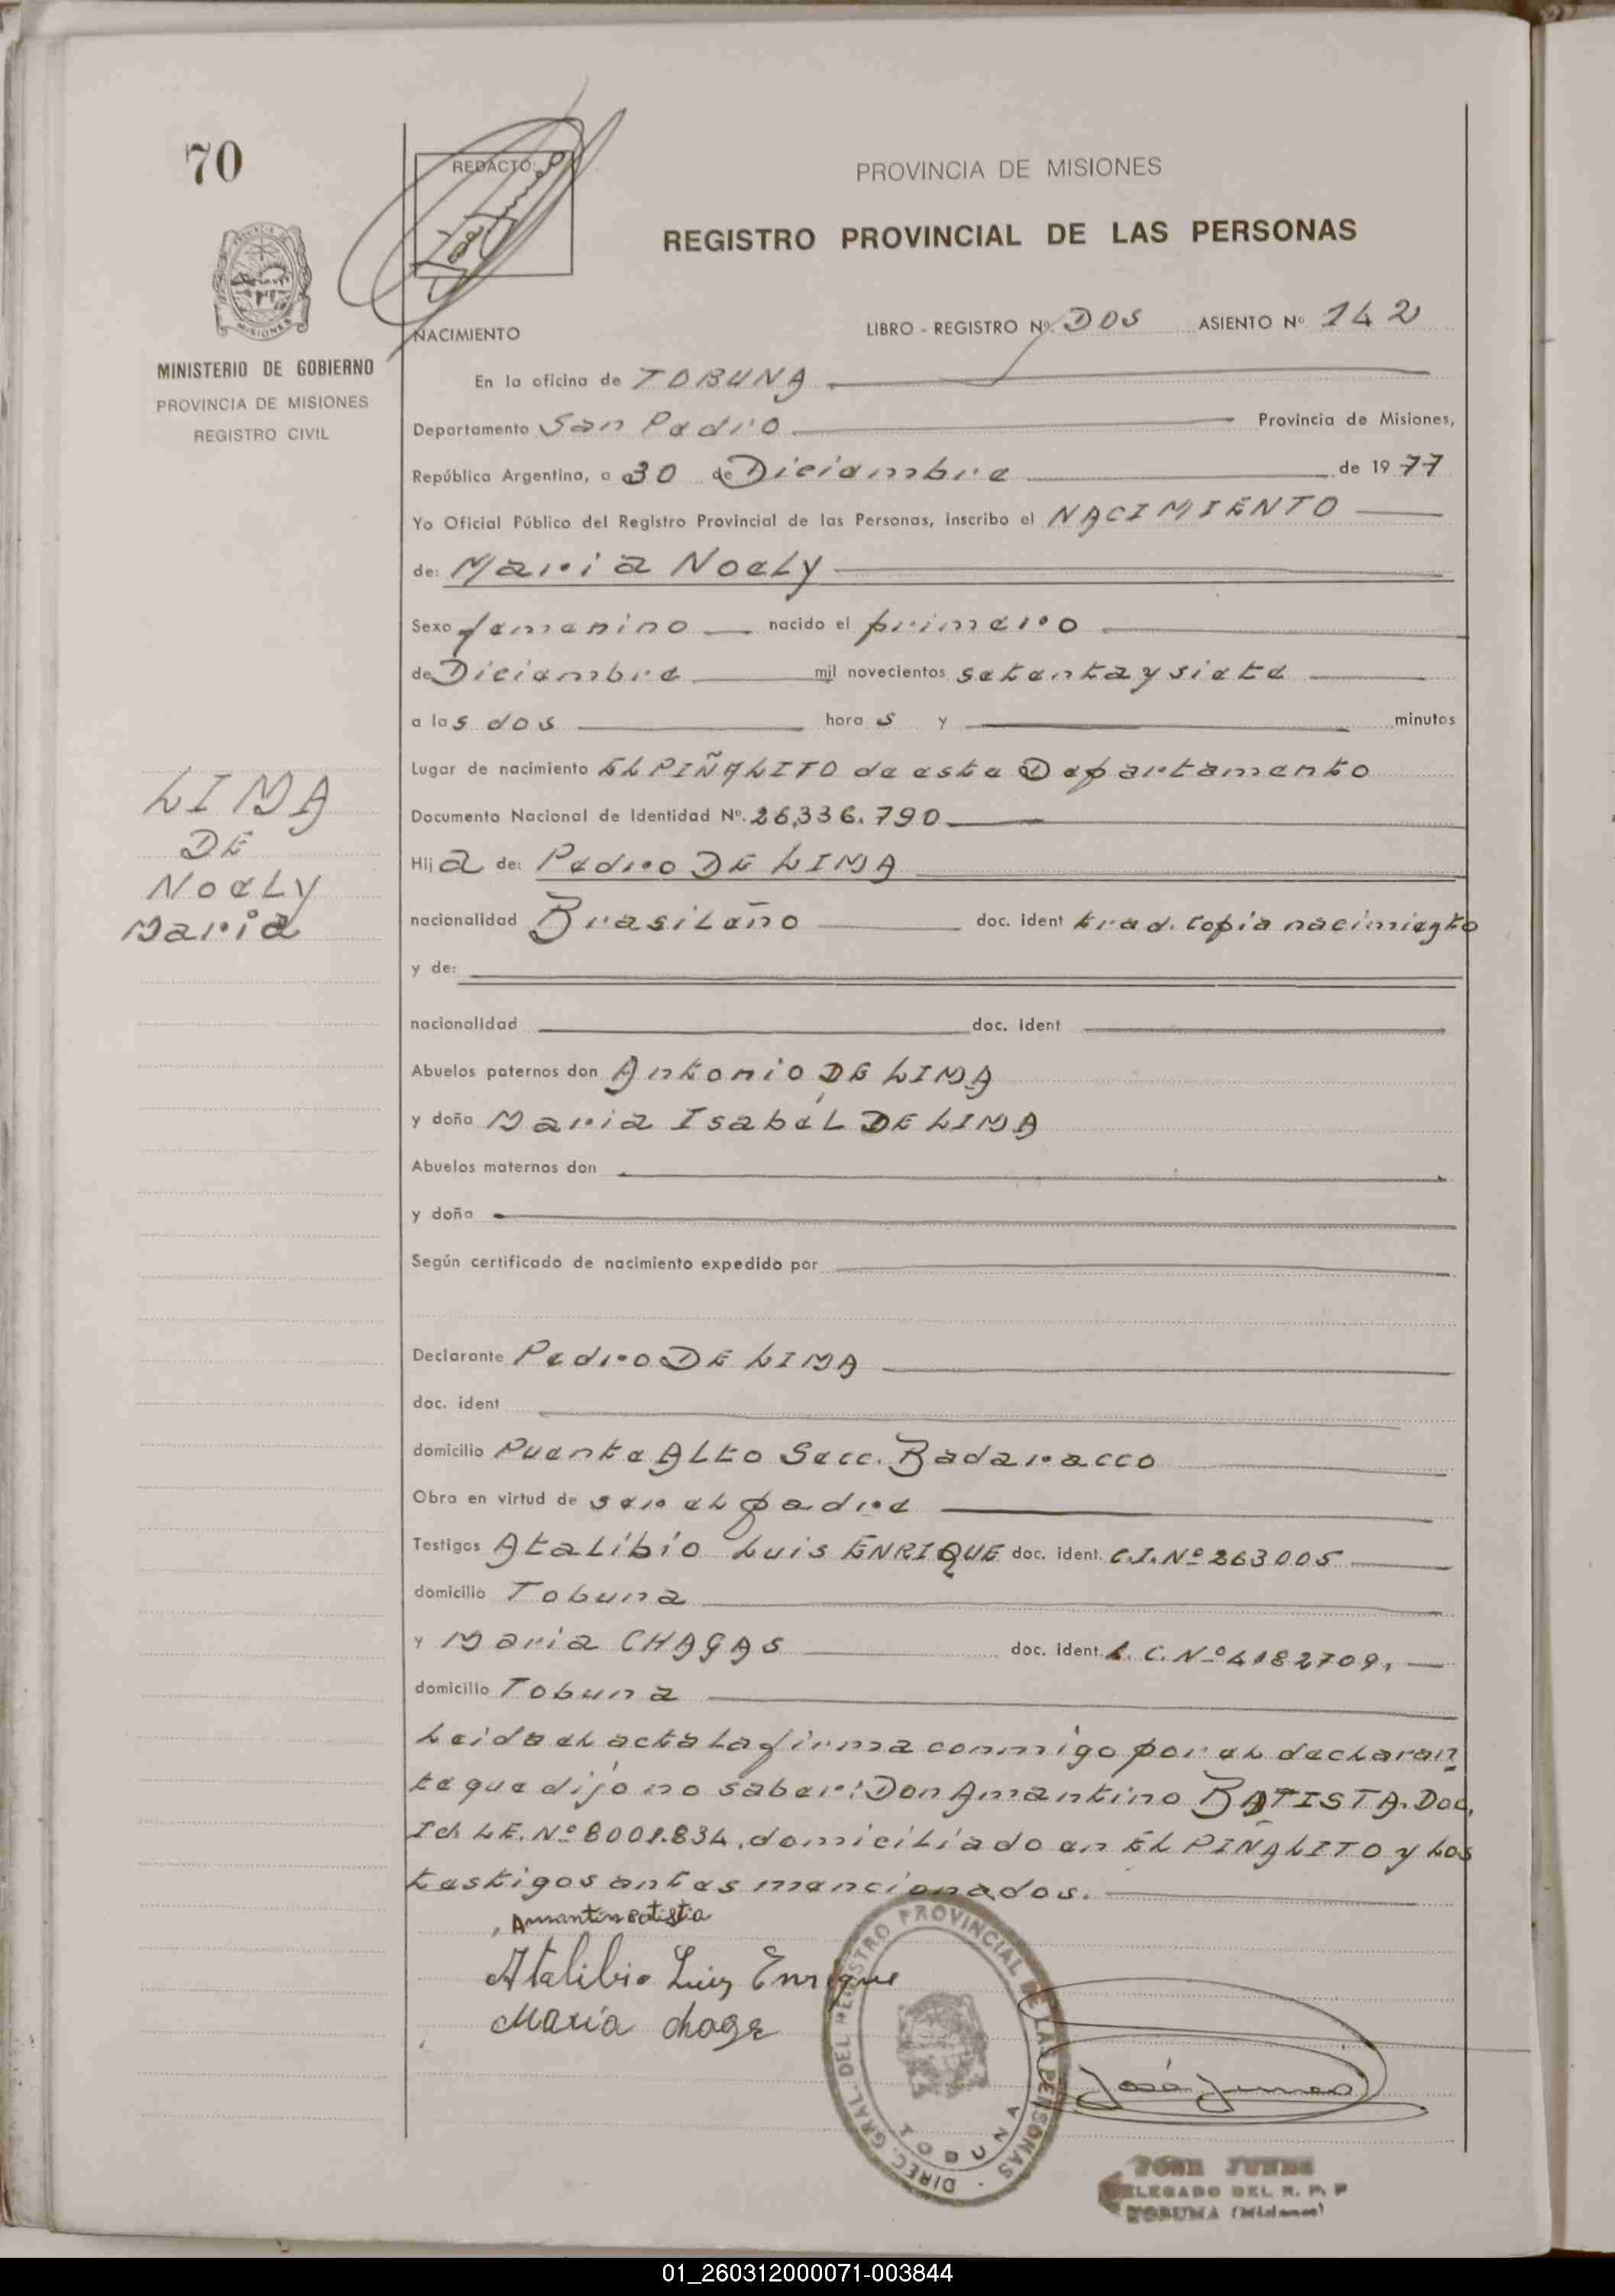 70
REDACTO:
PROVINCIA DE MISIONES
REGISTRO PROVINCIAL DE LAS PERSONAS
MISIONES
MINISTERIO DE GOBIERNO
PROVINCIA DE MISIONES
REGISTRO CIVIL
NACIMIENTO
LIBRO - REGISTRO Nº. DOS ASIENTO Nº 142
En la oficina de TOBUNA
Departamento San Pedro Provincia de Misiones,
República Argentina, a 30 de Diciembre de 1977
Yo Oficial Público del Registro Provincial de las Personas, inscribo el NACIMIENTO
de: Maria Noely
Sexo femenino nacido el primero
de Diciembre mil novecientos setenta y siete
a las dos horas y minutos
Lugar de nacimiento EL PIÑALITO de este Departamento
Documento Nacional de Identidad Nº. 26.336.790
Hija de: Pedro DE LIMA
nacionalidad Brasileño doc. ident trad. copia nacimiento
y de:
nacionalidad doc. ident
Abuelos paternos don Antonio DE LIMA
y doña Maria Isabél DE LIMA
Abuelos maternos don
y doña
Según certificado de nacimiento expedido por
Declarante Pedro DE LIMA
doc. ident
domicilio Puente Alto Secc. Badaracco
Obra en virtud de ser el padre
Testigos Atalibio Luis ENRIQUE doc. ident. C.I. Nº 263005
domicilio Tobuna
y Maria CHAGAS doc. ident. L. C. Nº 4182709.
domicilio Tobuna
Leida el acta la firma conmigo por el declaran
te que dijo no saber: Don Amantino BATISTA. Doc.
Id. L.E. Nº 8001.834, domiciliado en EL PIÑALITO y los
testigos antes mencionados.
LIMA
DE
Noely
Maria
Atalibio Luiz Enrique
María
DIREC. GRAL. DEL REGISTRO PROVINCIAL DE LAS PERSONAS
TOBUNA
DELEGADO DEL R. P. P
TOBUNA (Misiones)
01_260312000071-003844